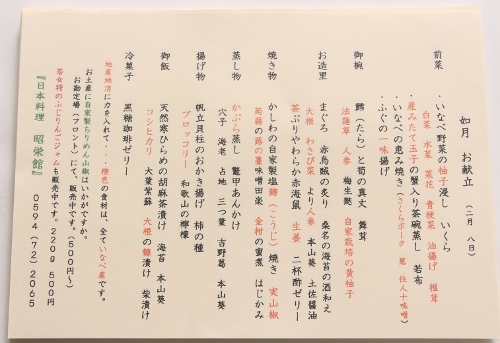 如月 お献立 （二月 八日）
前菜
・いなべ野菜の柚子浸し いくら
白菜 水菜 菜花 青梗菜 油揚げ 椎茸
・産みたて玉子の蟹入り茶碗蒸し 若布
・いなべの恵み焼き（さくらポーク 葱 仕人十味噌）
・ふぐの一味揚げ
御椀
鱈（たら）と筍の真丈 舞茸
法蓮草 人参 梅生麩 自家栽培の黄柚子
お造里
まぐろ 赤烏賊の炙り 桑名の海苔の酒和え
大根 わさび菜 より人参 本山葵 土佐醤油
茶ぶりやわらか赤海鼠 生姜 二杯酢ゼリー
焼き物
かしわの自家製塩麹（こうじ）焼き 実山椒
蒟蒻の蕗の薹味噌田楽 金柑の蜜煮 はじかみ
蒸し物
かぶら蒸し 鼈甲あんかけ
穴子 海老 占地 三つ葉 吉野葛 本山葵
揚げ物
帆立貝柱のおかき揚げ 柿の種
ブロッコリー 和歌山の檸檬
御飯
天然寒ひらめの胡麻茶漬け 海苔 本山葵
コシヒカリ 大葉紫蘇 大根の麹漬け 柴漬け
冷菓子
黒糖珈琲ゼリー
地産地消に力を入れて・・・橙色の食材は、全ていなべ産です。
お土産に自家製ちりめん山椒はいかがですか。
お勘定場（フロント）にて、販売中です。（500円〜）
若女将のふじりんごジャムも販売中です。220g 500円
『日本料理 昭栄館』 0594（72）2065